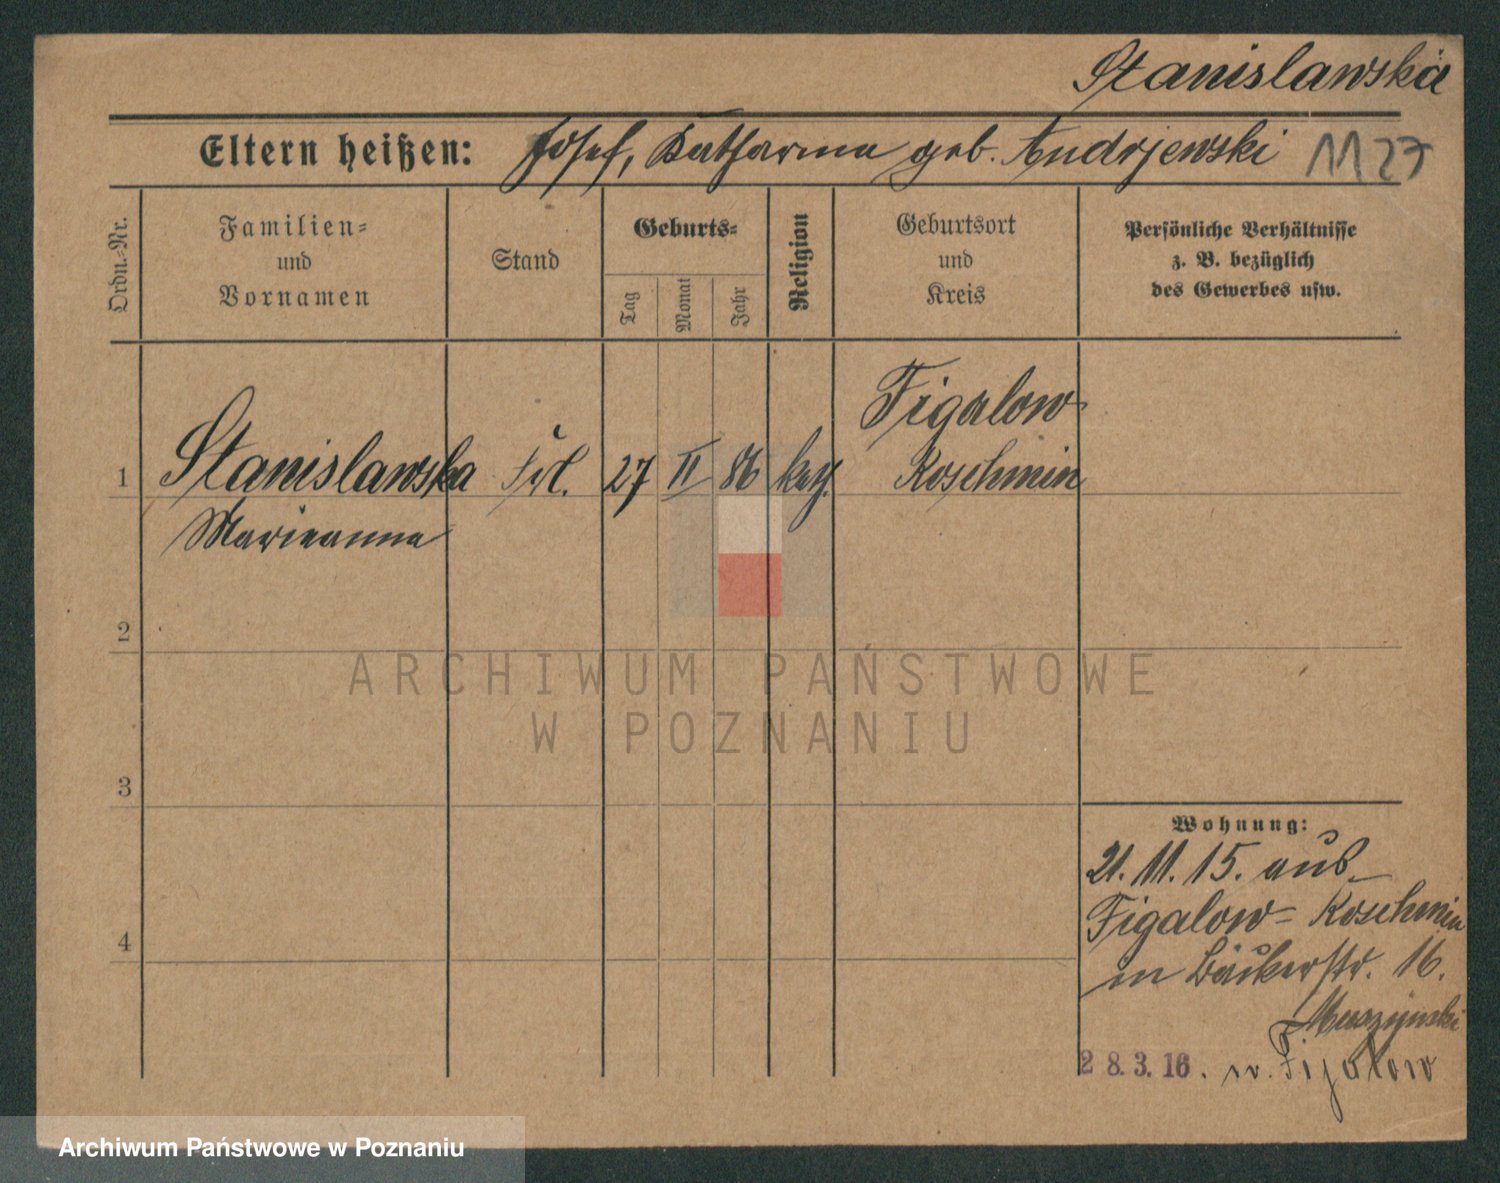 Stanislawska
Eltern heißen: Josef, Katharina geb. Andrjewski 1127
Ordn.-Nr.
Familien-
und
Vornamen
Stand
Geburts-
Tag
Monat
Jahr
Religion
Geburtsort
und
Kreis
Persönliche Verhältnisse
z. B. bezüglich
des Gewerbes usw.
Figalow
1 Stanislawska Frl. 27 II 86 kath. Koschmin
Marianna
2
ARCHIWUM PAŃSTWOWE
W POZNANIU
3
Wohnung:
21. 11. 15. aus
Figalow- Koschmin
4
in Bäckerstr. 16.
Muszynski
28.3.16. n. Figalow
Archiwum Państwowe w Poznaniu